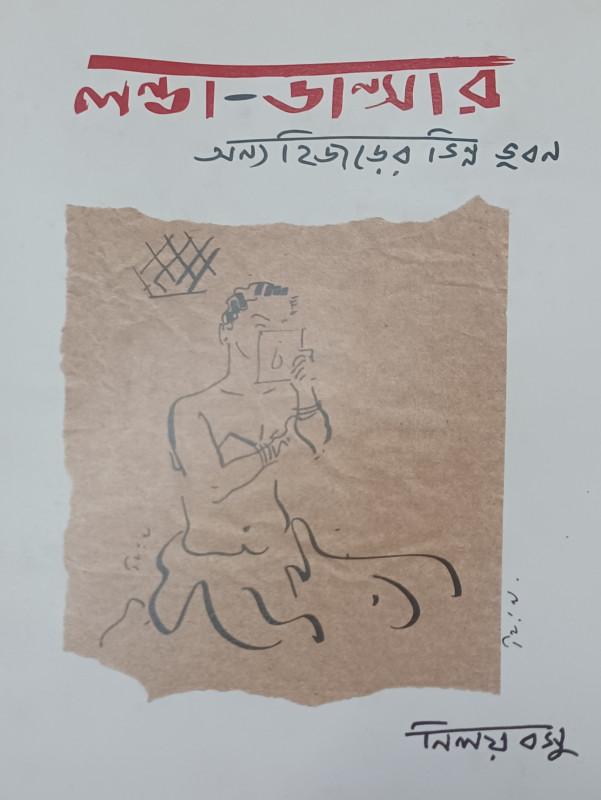 লন্ডা-ডান্সার
অন্য হিজড়ের ভিন্ন ভুবন
নিলয় বসু